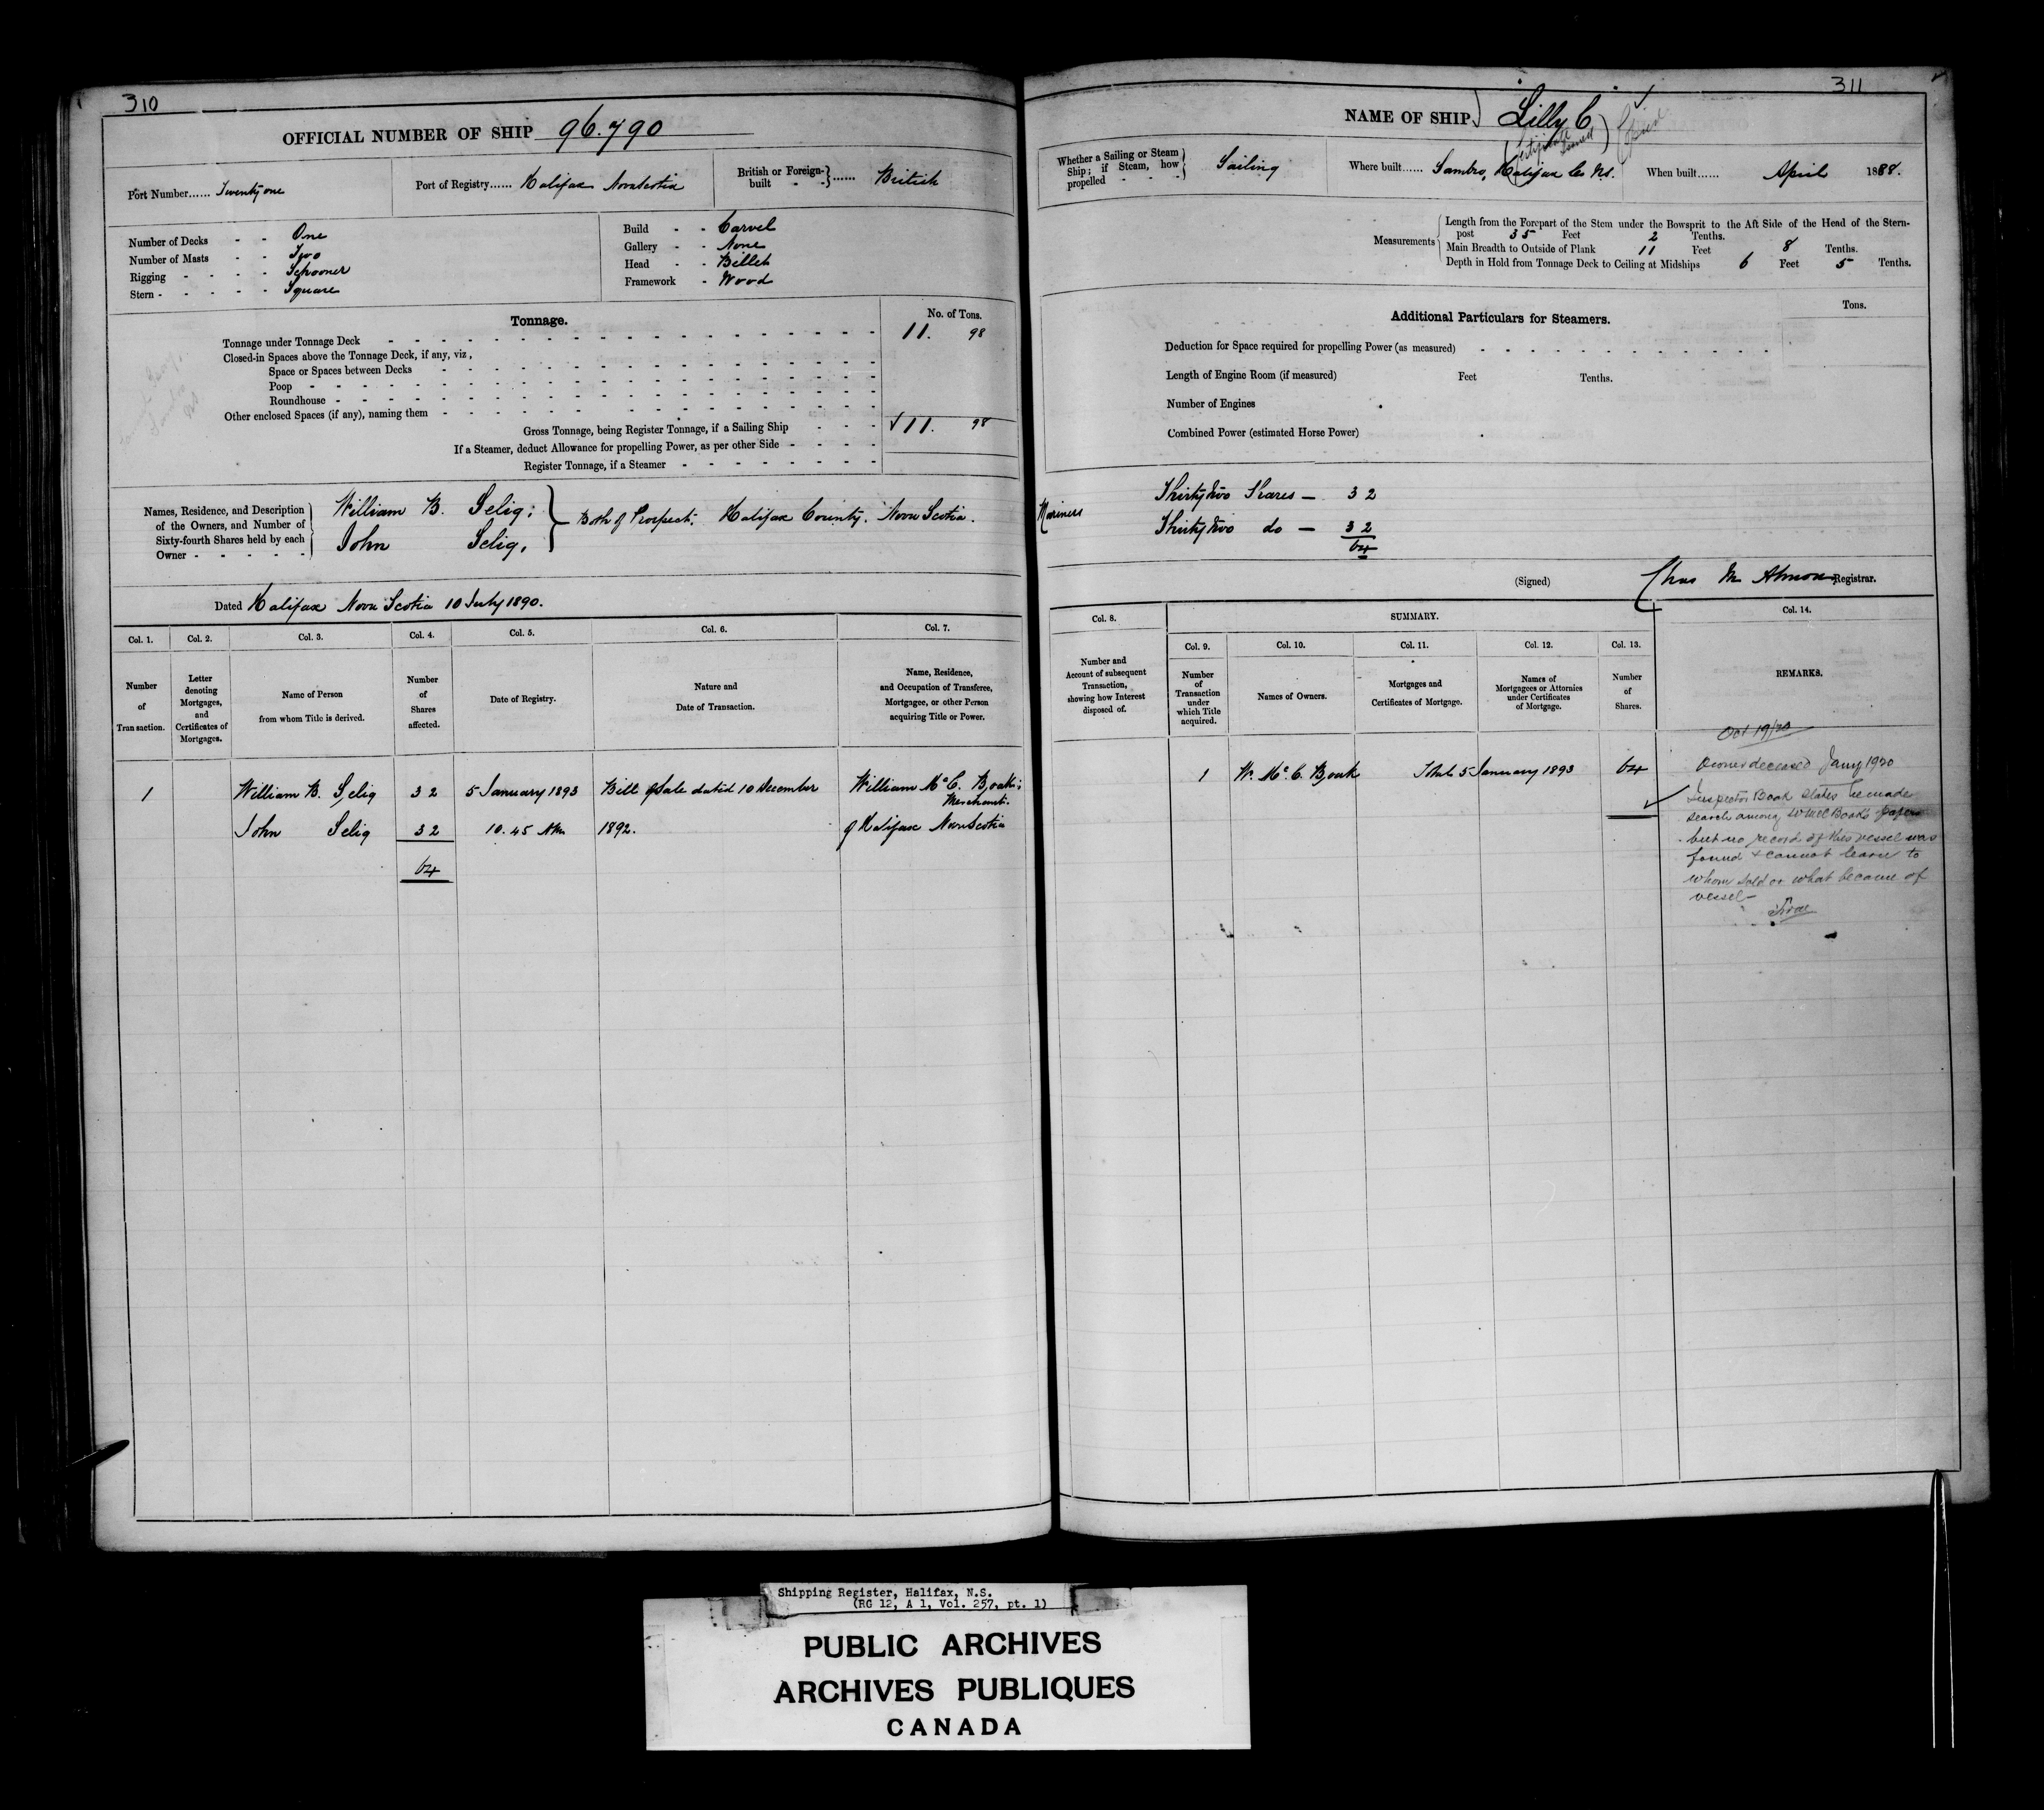 310
OFFICIAL NUMBER OF SHIP 96.790
Port Number...... Twenty one
Port of Registry...... Halifax Nova Scotia
British or Foreign-built - -}...... British
Number of Decks - - One
Number of Masts - - Two
Rigging - - - - Schooner
Stern - - - - - Square
Build - - Carvel
Gallery - - None
Head - - Billet
Framework - Wood
Tonnage.
No. of Tons.
Tonnage under Tonnage Deck 11. 98
Closed-in Spaces above the Tonnage Deck, if any, viz,
Space or Spaces between Decks
Poop
Roundhouse
Other enclosed Spaces (if any), naming them
Gross Tonnage, being Register Tonnage, if a Sailing Ship - - - √11. 98
If a Steamer, deduct Allowance for propelling Power, as per other Side
Register Tonnage, if a Steamer
Names, Residence, and Description
of the Owners, and Number of
Sixty-fourth Shares held by each
Owner - - - - -
William B. Selig;
John Selig,
Both of Prospect, Halifax County, Nova Scotia.
Dated Halifax Nova Scotia 10 July 1890.
Col. 1. Col. 2. Col. 3. Col. 4. Col. 5. Col. 6. Col. 7.
Number of Transaction.
Letter denoting Mortgages, and Certificates of Mortgages.
Name of Person from whom Title is derived.
Number of Shares affected.
Date of Registry.
Nature and Date of Transaction.
Name, Residence, and Occupation of Transferee, Mortgagee, or other Person acquiring Title or Power.
1 William B. Selig 32 5 January 1893 Bill of Sale dated 10 December William McC. Boak;
Merchant.
John Selig 32 10.45 AM 1892. of Halifax Nova Scotia
64
311
NAME OF SHIP Lilly C
Certificate
Issued
Whether a Sailing or Steam
Ship; if Steam, how
propelled - - -
Sailing
Where built...... Sambro, Halifax Co NS.
When built...... April 1888.
Measurements
Length from the Forepart of the Stem under the Bowsprit to the Aft Side of the Head of the Stern-
post 35 Feet 2 Tenths.
Main Breadth to Outside of Plank 11 Feet 8 Tenths.
Depth in Hold from Tonnage Deck to Ceiling at Midships 6 Feet 5 Tenths.
Additional Particulars for Steamers.
Tons.
Deduction for Space required for propelling Power (as measured)
Length of Engine Room (if measured) Feet Tenths.
Number of Engines
Combined Power (estimated Horse Power)
Mariners
Thirty two Shares — 32
Thirty two do — 32
64
(Signed) Chas M Almon Registrar.
Col. 8. SUMMARY. Col. 14.
Col. 9. Col. 10. Col. 11. Col. 12. Col. 13.
Number and Account of subsequent Transaction, showing how Interest disposed of.
Number of Transaction under which Title acquired.
Names of Owners.
Mortgages and Certificates of Mortgage.
Names of Mortgagees or Attornies under Certificates of Mortgage.
Number of Shares.
REMARKS.
1 W. McC. Boak 5 January 1893 64
Oct 19/20
Owner deceased Jany 1920
Inspector Boak states he made
search among W McC Boak's papers
but no record of this vessel was
found & cannot learn to
whom sold or what became of
vessel—
Shipping Register, Halifax, N.S.
(RG 12, A 1, Vol. 257, pt. 1)
PUBLIC ARCHIVES
ARCHIVES PUBLIQUES
CANADA